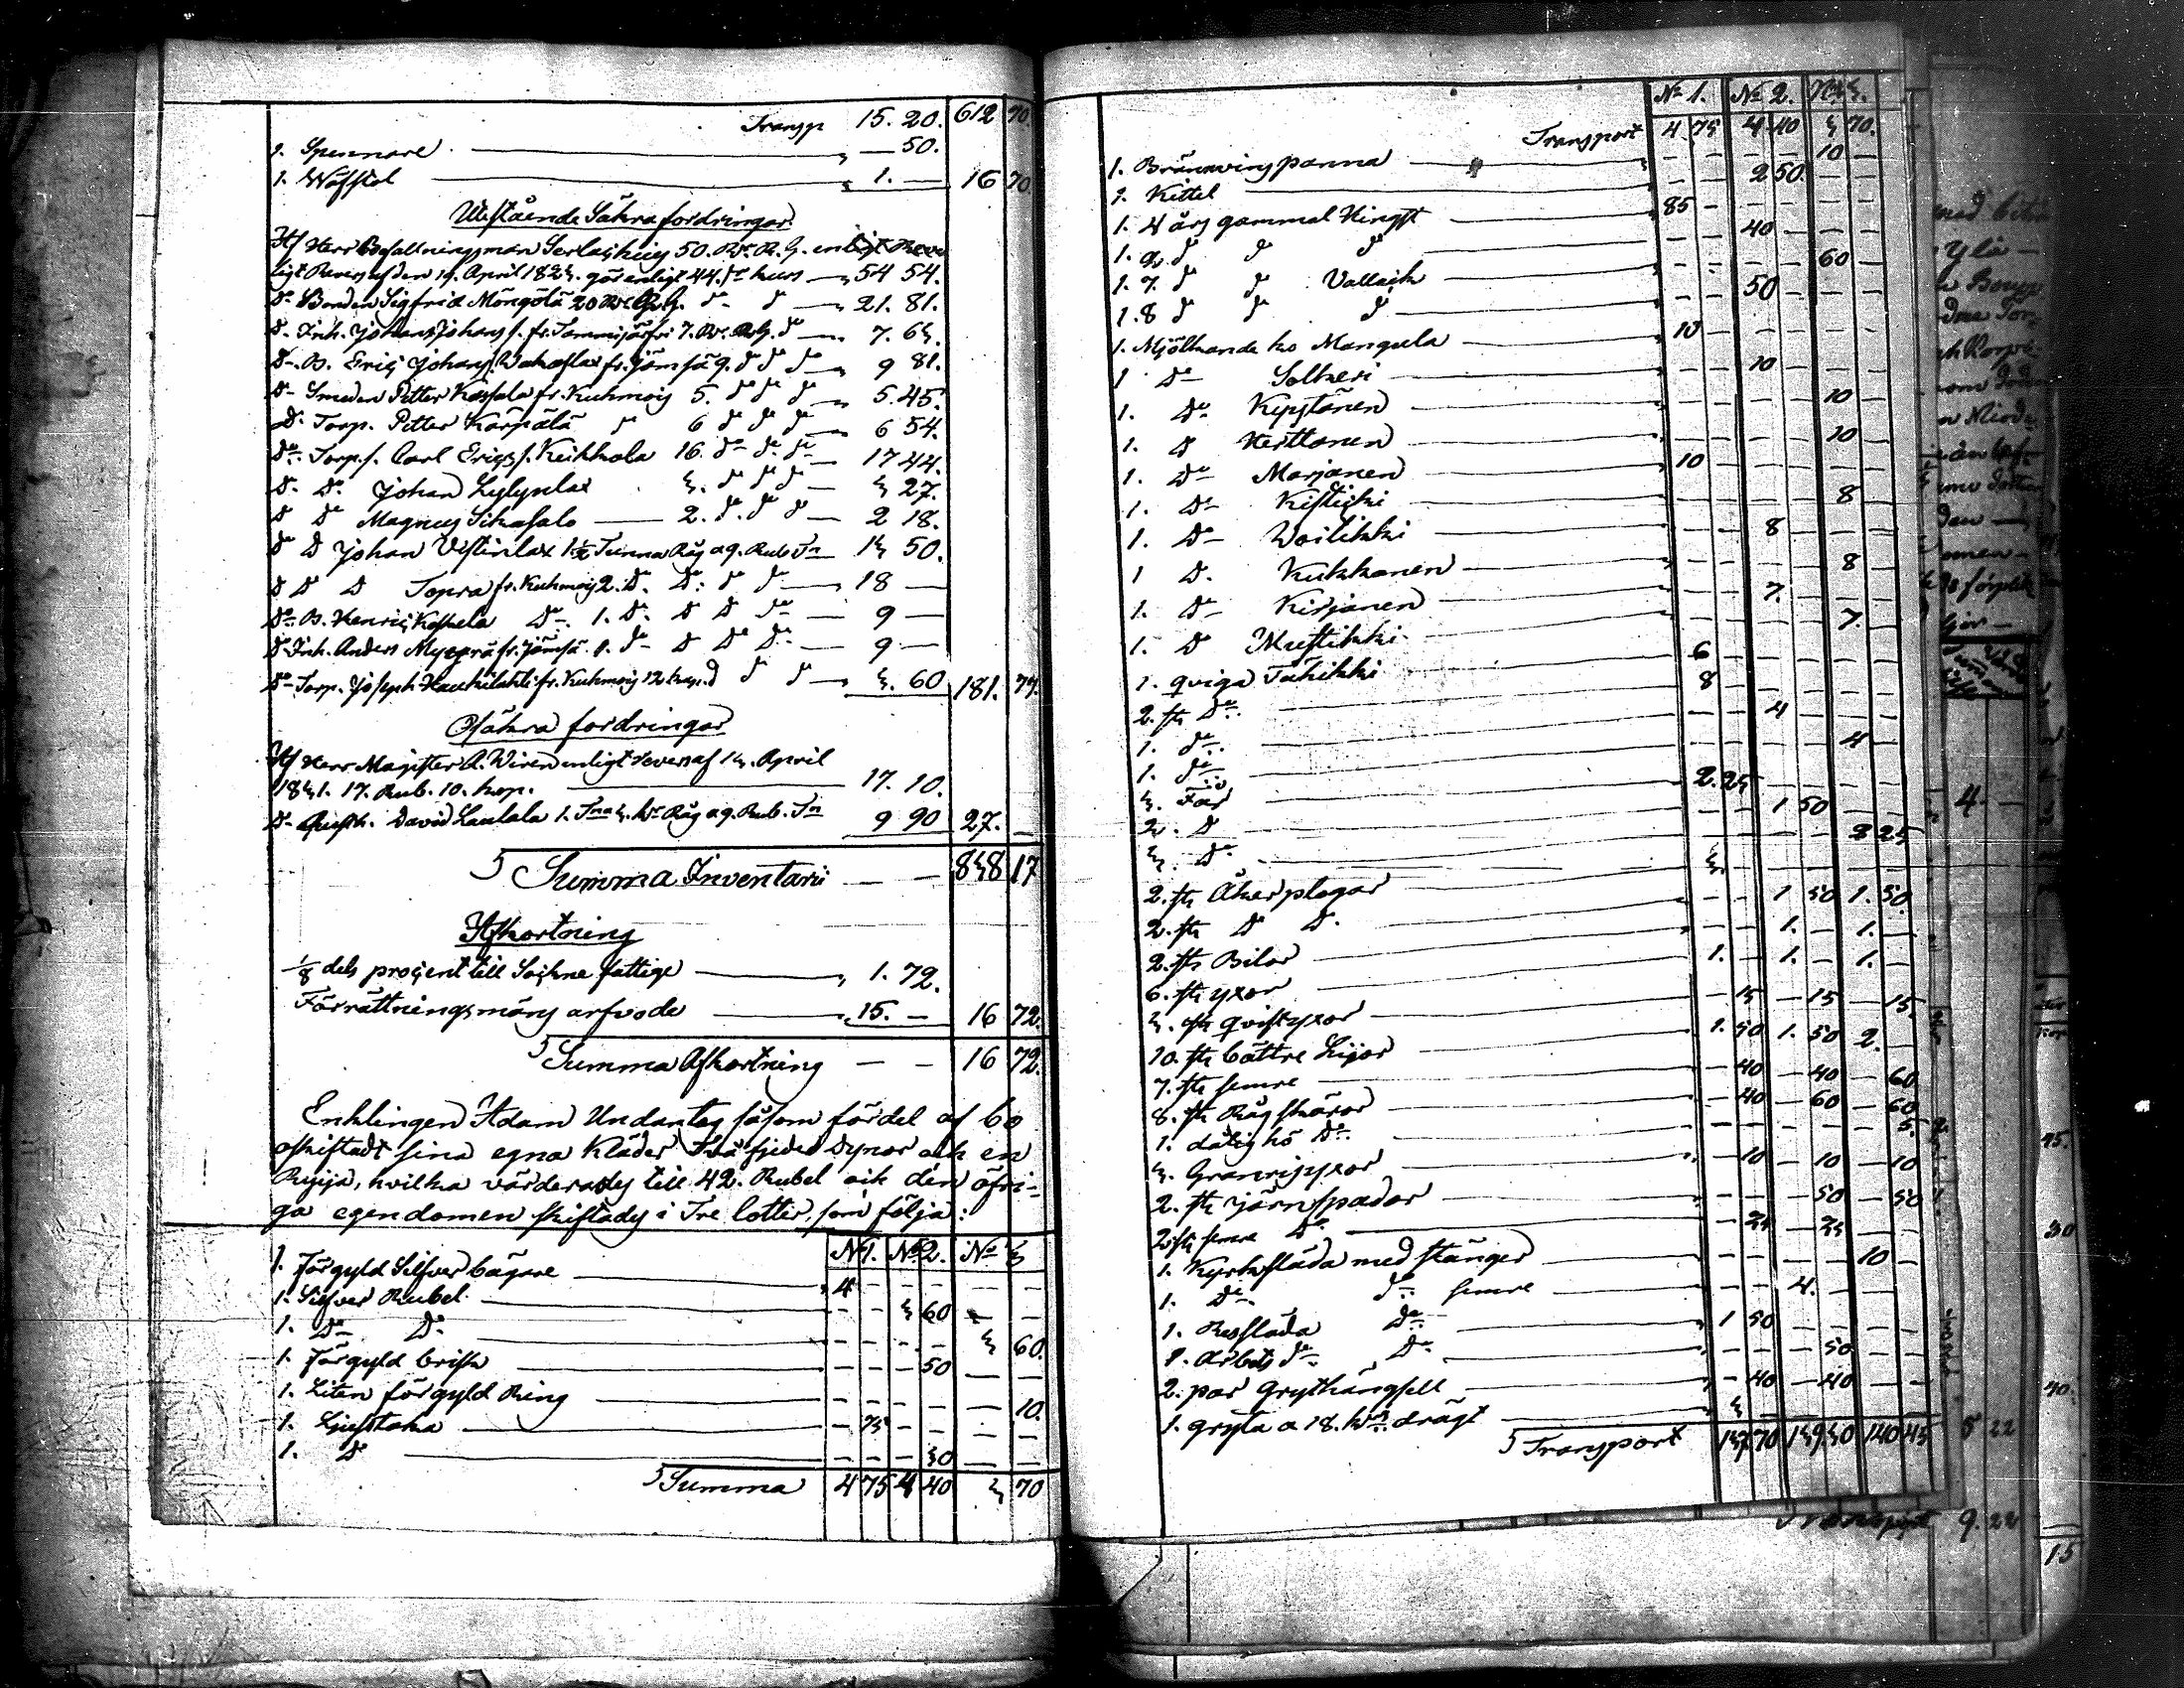 Transp 15. 20. 612 70.
1. Spennare — 50.
1. Wäfstol 1. — 16 70
Utestående Säkra fordringar
Af Herr Befallningsman Serlachius 50. Rd. R. G. enligt Reve
ligt Revers af den 19. April 1823. gör enligt 44. kurs 54 54.
Do Bonden Sigfrid Möngölä 20 Rd. R. G. do do 21. 81.
Do Inh. Johan Johans s. fr. Tammijärfvi 7. Rd. R. G. do 7. 63.
Do B. Eric Johans Wakaslax fr. Jämsä 9. do do do 9 81.
Do Smeden Petter Kassala fr. Kuhmois 5. do do do 5. 45.
Do Torp. Petter Kärpälä do 6 do do do 6 54.
Do Torp. s. Carl Ericss. Keikkala 16. do do do 17 44.
Do Do Johan Lylynlax 3. do do do 3 27.
Do Do Magnus Sikasalo 2. do do do 2 18.
Do Do Johan Vestinlax 1½ Tunna Råg a 9. Rub Tn 13 50.
Do Do Do Topra fr. Kuhmois 2. Do Do do do 18 —
Do B. Henric Koskela Do 1. Do Do Do do 9 —
Do Inh. Anders Myrprä fr. Jämsä 1. do Do Do Do 9 —
Do Torp. Joseph Haukilahti fr. Kuhmois 12 kap. do do do 3. 60 181. 77.
Osäkra fordringar
Af Herr Magister A. Wiren enligt revers af 13. April
1831. 17. Rub. 10. kop. 17. 10.
Do David Laulala 1. Tna 3. kr Råg a 9. Rub. Tn 9 90 27. —
Summa Inventarii — — 838 17
Afkortning
⅛ dels procent till Sockne fattige 1. 72.
Förrättningsmäns arfvode 15. — 16 72.
Summa Afkortning — — 16 72.
Enklingen Adam Undantog såsom fördel af bo
oskiftadt sina egna Kläder Två fjeder Dynor och en
Ryija, hvilka värderades till 42. Rubel och den öfri-
ga egendomen skiftades i Tre lotter, som följa:
No 1. No 2. No 3
1. Förgyld Silfver bägare 4 — — — — —
1. Silfver Rubel — — 3 60 — —
1. Do Do — — — — 3 60.
1. Förgyld brisk — — — 50 — —
1. Liten förgyld Ring — — — — — 10.
1. Ljusstaka — 75 — — — —
1. Do — — — 30 — —
Summa 4 75 4 40 3 70
No 1. No 2. No 3.
Transport 4 75 4 40 3 70.
1. Bränvins panna — — — — 10 —
1. Kittel — — 2 50. — —
1. 4 års gammal Hingst 85 — — — — —
1. 2. do do do — — 40 — — —
1. 7. do do Vallack — — — — 60 —
1. 8 do do do — — 50 — — —
1. Mjölkande ko Mangula 10 — — — — —
1 Do Solkeri — — 10 — — —
1. Do Kipstänen — — — — 10 —
1. Do Herttanen — — — — 10 —
1. Do Marjanen 10 — — — — —
1. Do Kisticki — — — — 8 —
1. Do Woilikki — — 8 — — —
1 Do Kukkanen — — — — 8 —
1. Do Kirjanen — — 7. — — —
1. Do Mustikki — — — — 7. —
1. qviga Tähikki 6 — — — — —
2. st. Do 8 — — — — —
1. do — — 4 — — —
1. do — — — — 4 —
3. Får 2. 25 — — — —
2. Do — — 1 50 — —
3. Do — — — — 2 25
2. st. Åkerplogar 3. — — — — —
2. st. Do Do — — 1 50 1. 50.
2. st. Bilor — — 1. — 1. —
6. st. yxor 1. — 1. — 1. —
3. st. qvistyxor — 15 — 15 — 15.
10. st. bättre Lijor 1. 50 1. 50 2. —
7. st. semre — 40 — 40 — 60
8. st. Råg skäror — 40 — 60 — 60
1. dålig hö Do — — — — — 5.
3. Granrisyxor — 10 — 10 — 10
2. st. järn spador — — — 50 — 50
2. st. semre Do — 25 — 25 — —
1. Kyrksläda med stänger — — — — 10 —
1. Do do semre — — 4. — — —
1. Ressläda Do 1 50 — — — —
1. Arbets do Do — — — 50 — —
2. par Grythängsell — 40 — 40 — —
1. gryta a 18. kr drägt 3 — — — — —
Transport 137 70 139 30 140 45